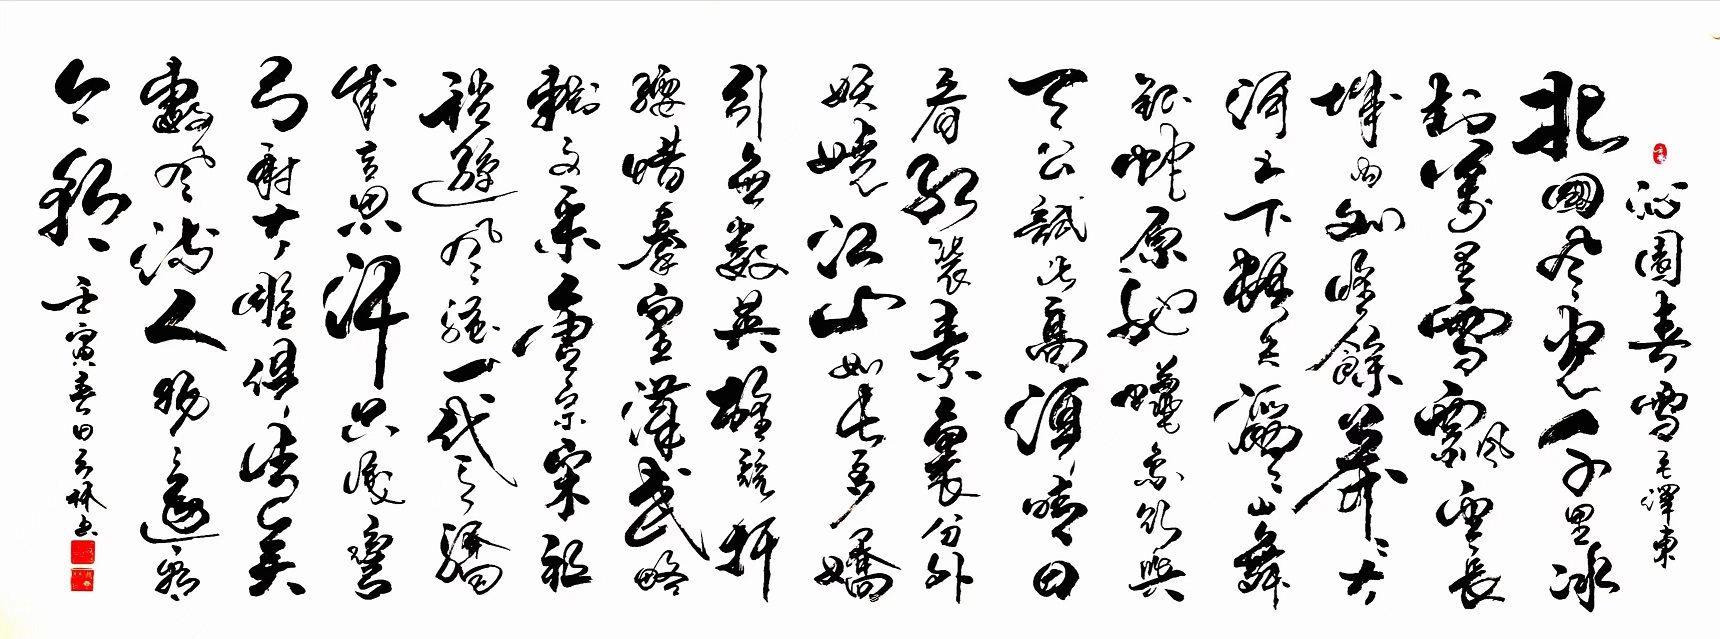 沁園春雪 毛澤東
北國風光千里冰
封萬里雪飄望長
城內外惟餘莽莽大
河上下頓失滔滔山舞
銀蛇原馳蠟象欲與
天公試比高須晴日
看紅裝素裹分外
妖嬈江山如此多嬌
引無數英雄競折
腰惜秦皇漢武略
輸文采唐宗宋祖
稍遜風騷一代天驕
成吉思汗只識彎
弓射大雕俱往矣
數風流人物還看
今朝 壬寅春日云林书